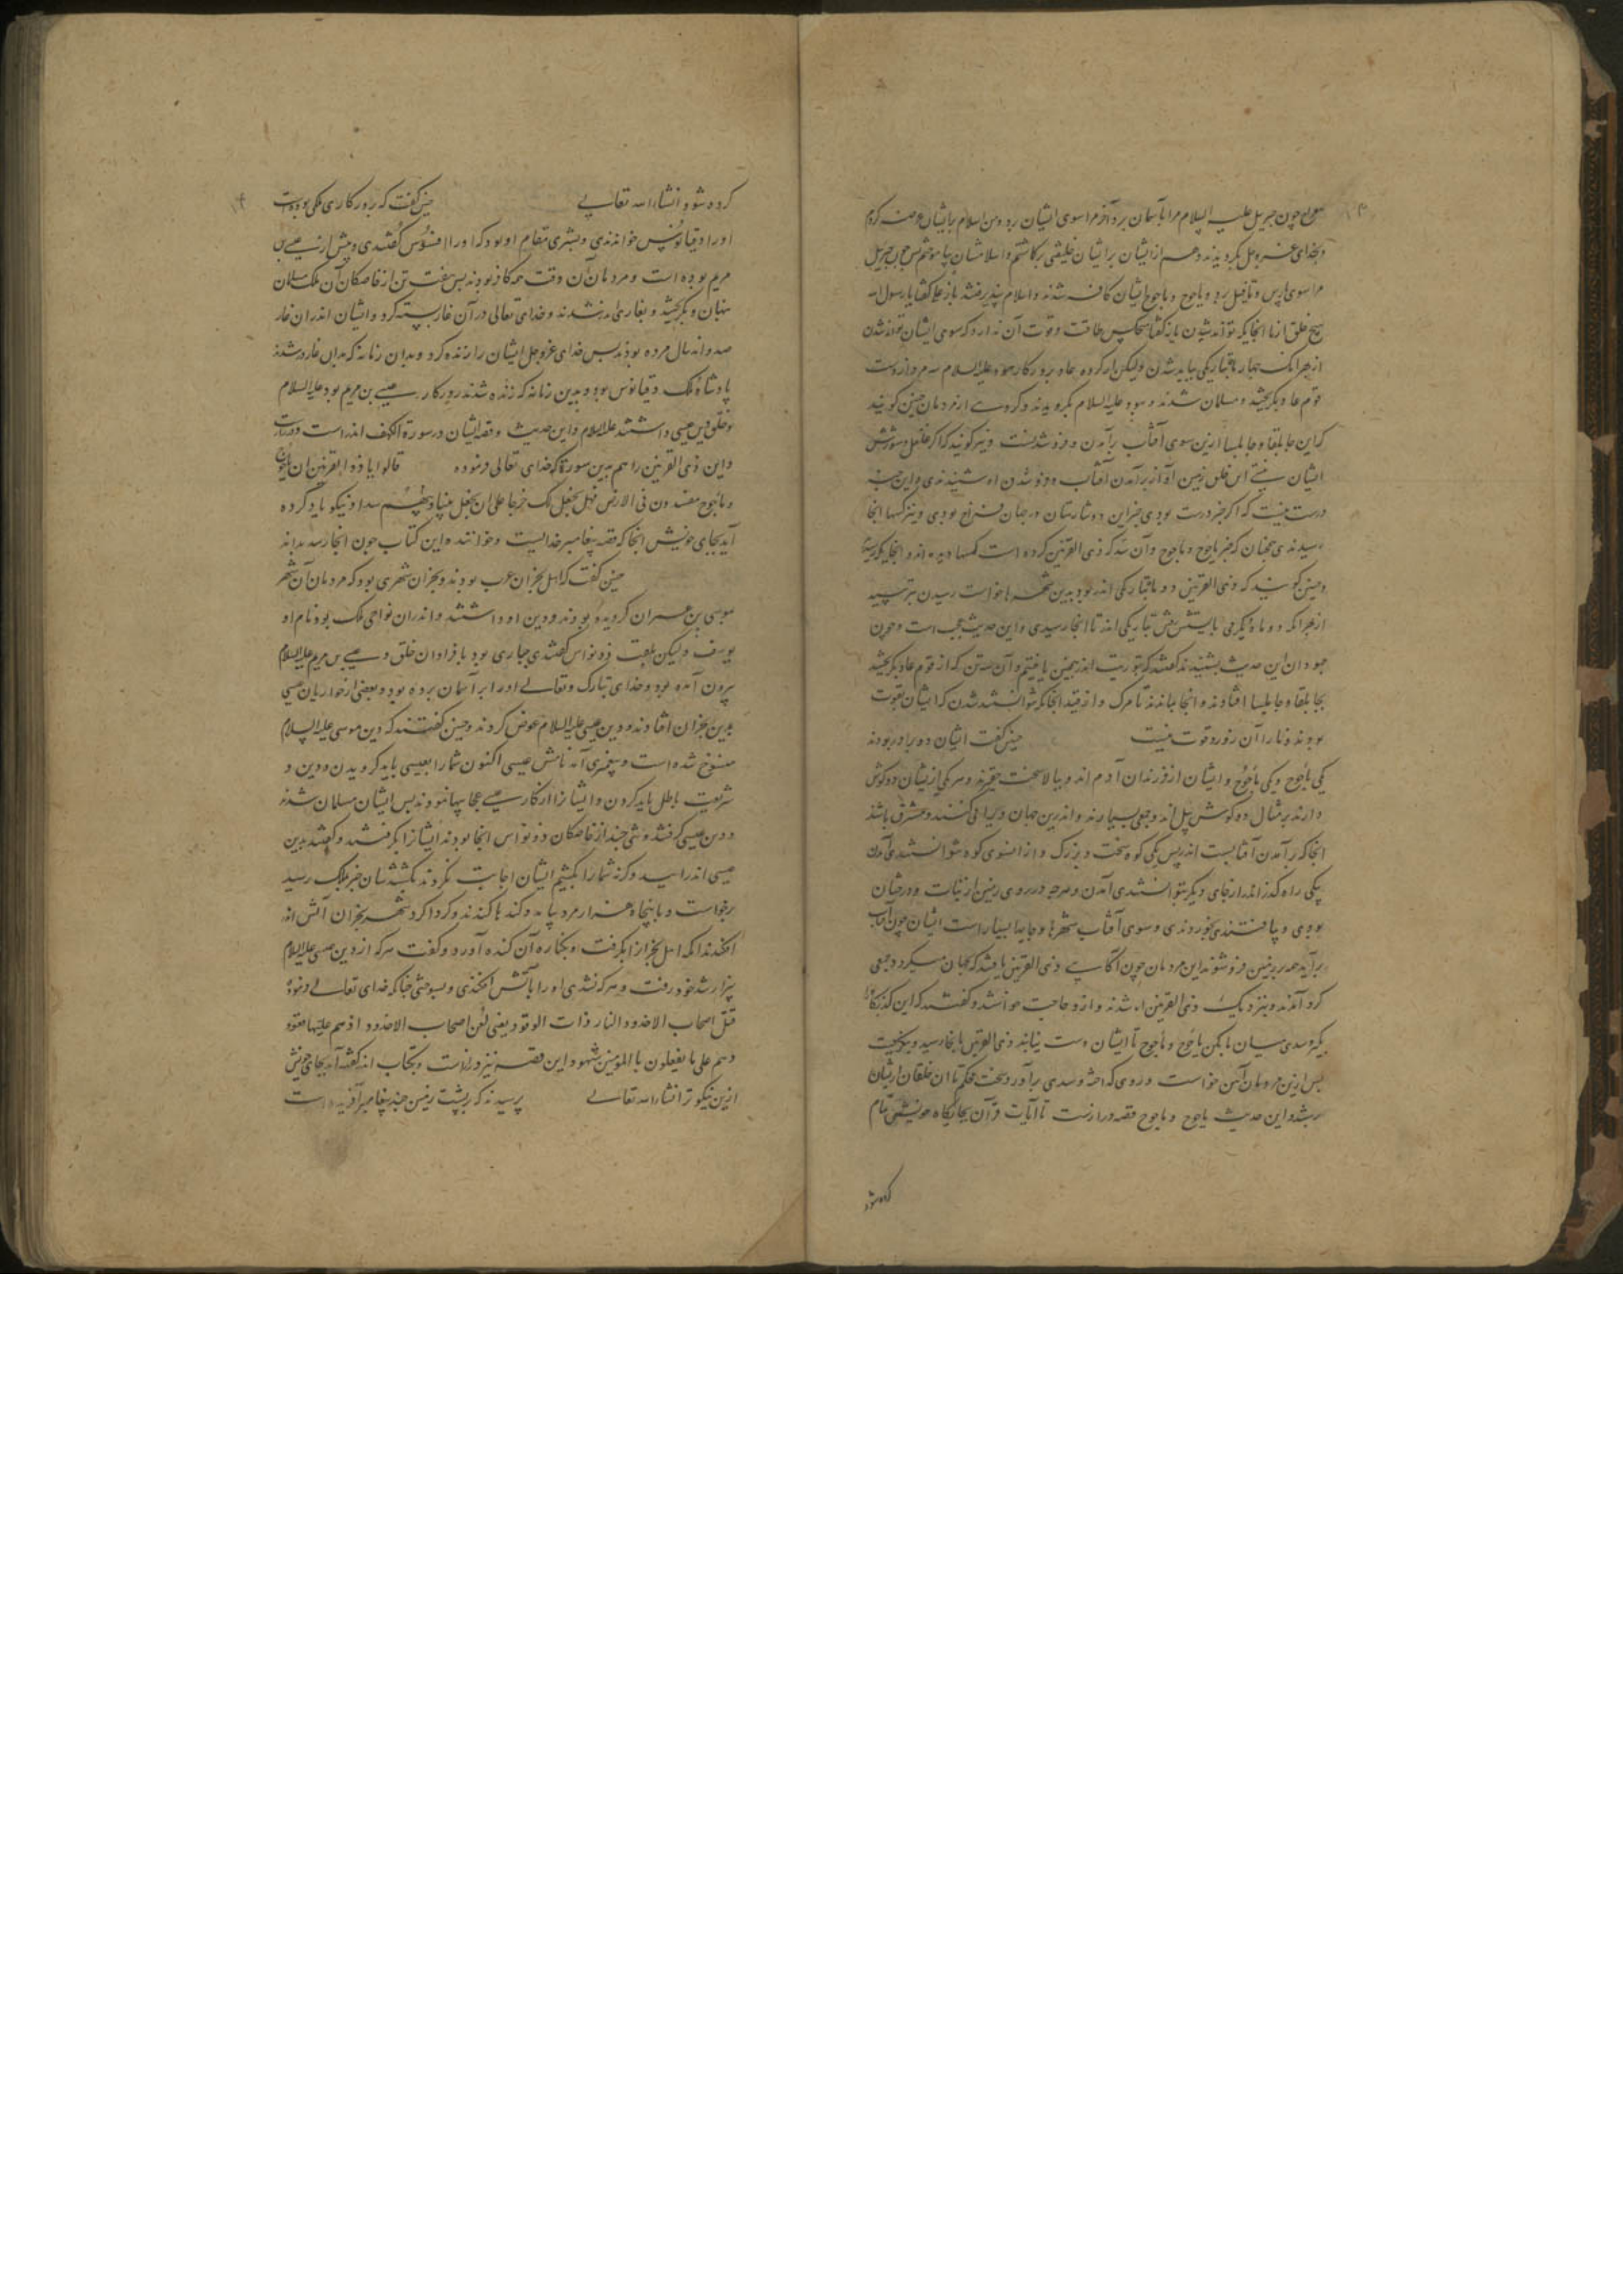 معراج چون جبریل علیه السلام مرا بآسمان برد آنگه مرا سوی ایشان برد و من اسلام برایشان عرضه کردم
و بخدای عز و جل بگرویدند و هم از ایشان برایشان خلیفتی برگماشتم و اسلامشان بیاموختم پس چون جبریل
مرا سوی و تافیل برد و یاجوج و ماجوج ایشان کافر شدند و اسلام نپذیرفتند باز علی گفتا یا رسول الله
هیچ خلق از ما آنجایگه تواند شدن باز گفتا هیچکس طاقت و قوت آن ندارد که سوی ایشان تواند شدن
از بهر آنک چهار ماه بتاریکی بباید شدن ولیکن بروزگار هود علیه السلام سه مرد از
قوم عاد بگریختند و مسلمان شدند و بهود علیه السلام بگرویدند و گروهی از مردمان چنین گویند
که این جابلقا و جابلسا ازین سوی آفتاب برآمدن و فرو شدنست و نیز گویند که اگر غلغل و شورش
ایشان نیستی این خلق زمین آواز برآمدن آفتاب و فرو شدن او شنیدندی و این خبر
درست نیست که اگر خبر درست بودی خبر این دو شارستان در جهان بودی و نیز کسها آنجا
رسیدندی همچنان که خبر یاجوج و ماجوج و آن سد که ذی القرنین کرده است کسها دیده اند و آنجایگه رسیده
و چنین گویند که ذی القرنین دو ماه بتاریکی اندر بود بدین شهرها خواست رسیدن بترسید
از بهر آنک دو ماه دیگر می بایستش بتاریکی اندر تا آنجا رسیدی و این حدیث عجب است و چون
جهودان این حدیث بشنیدند گفتند که بتوریت اندر همچنین یافتیم و آن سه تن که از قوم عاد بگریختند
بجابلقا و جابلسا افتادند و آنجا بماندند تا مرگ و از آنجایگه نتوانستند شدن که ایشان بقوت
بودند و ما را آن زور و قوت نیست چنین گفت ایشان دو برادر بودند
یکی یاجوج و یکی ماجوج و ایشان از فرزندان آدم اند و ببالا سخت حقیرند و هر یکی ازیشان دو گوش
دارند بر مثال دو گوش پیل اند و جمعی بسیارند و اندرین جهان ویرانی کنند و مشرق باشند
آنجا که برآمدن آفتابست اندر پس یکی کوه سخت و بزرگ و از آنسوی کوه نتوانستندی آمدن
یکی راه گذر اندر از جای دیگر نتوانستندی آمدن و هرچه در روی زمین از نبات و درختان
بودی و یافتندی بخوردندی و سوی آفتاب شهرها و جایها بسیار است ایشان چون آفتاب
برآید همه بزمین فرو شوند این مردمان چون آگاهی ذی القرنین یافتند که بجهان میگردد جمعی
گرد آمدند و بنزدیک ذی القرنین شدند و ازو حاجت خواستند و گفتند که این گذرگاه را
بگیر و سدی میان ما بکن یاجوج و ماجوج تا ایشان دست نیابند ذی القرنین آنجا رسید و بنگریست
پس ازین مردمان آهن خواست و روی گداخته و سدی برآورد سخت محکم تا آن خلقان ازیشان
برستند و این حدیث یاجوج و ماجوج قصه درازست تا آیات قرآن بجایگاه خویشتن تمام
کرده شود
کرده شود انشاء الله تعالی چنین گفت که بروزگاری ملکی بوده است
او را دقیانوس خواندندی و بشهری مقام او بود که او را افسوس گفتندی و پیش از عیسی بن
مریم بوده است و مردمان آن وقت همه کافر بودند پس هفت تن از خاصگان آن ملک مسلمان
پنهان و بگریختند و بغاری اندر شدند و خدای تعالی در آن غار بسته کرد و ایشان اندران غار
صد و اند سال مرده بودند پس خدای عز و جل ایشان را زنده کرد و بدان زمانه که بدان غار در شدند
پادشاه ملک دقیانوس بود و بدین زمانه که زنده شدند روزگار عیسی بن مریم بود علیه السلام
و خلق دین عیسی داشتند علیه السلام و این حدیث و قصه ایشان در سورة الکهف اندر است
و این ذی القرنین را هم بدین سوره که خدای تعالی فرموده قالوا یا ذا القرنین ان یاجوج
و ماجوج مفسدون فی الارض فهل نجعل لک خرجا علی ان تجعل بیننا و بینهم سدا و نیکو یاد کرده
آید بجای خویش آنجا که قصه پیغامبر خدایست و خوانند و این کتاب چون آنجا رسد بداند
چنین گفت که اهل نجران عرب بودند و نجران شهری بود که مردمان آن شهر
بموسی بن عمران گرویده بودند و دین او داشتند و اندران نواحی ملک بود نام او
یوسف ولیکن بلقب ذونواس گفتندی جباری بود با فراوان خلق و عیسی بن مریم علیه السلام
بیرون آمده بود و خدای تبارک و تعالی او را بر آسمان برده بود و بعضی از حواریان عیسی
بدین نجران افتادند و دین عیسی علیه السلام عرض کردند و چنین گفتند که دین موسی علیه السلام
منسوخ شده است و پیغمبری آمد نامش عیسی اکنون شما را بعیسی باید گرویدن و دین و
شریعت باطل باید کردن و ایشانرا از کار عیسی عجایبها نمودند پس ایشان مسلمان شدند
و دین عیسی گرفتند و تنی چند از خاصگان ذونواس آنجا بودند ایشانرا بگرفتند و گفتند بدین
عیسی اندر آیید و گرنه شما را بکشیم ایشان اجابت نکردند بکشتندشان خبر بملک رسید
برخواست و با پنجاه هزار مرد بیامد و کندها کندند و گرداگرد شهر نجران آتش اندر
افکندند آنکه اهل نجران را بگرفت و بکناره آن کنده آورد و گفت هر که از دین عیسی علیه السلام
بیزار شد خود رفت و هر که نشدی او را بآتش افکندی و بسوختی چنانکه خدای تعالی فرمود
قتل اصحاب الاخدود النار ذات الوقود یعنی لعن اصحاب الاخدود اذ هم علیها قعود
و هم علی ما یفعلون بالمؤمنین شهود و این قصه نیز درازست و بکتاب اندر گفته آید بجای خویش
ازین نیکوتر انشاء الله تعالی پرسیدند که بر پشت زمین چند پیغامبر آفریده است